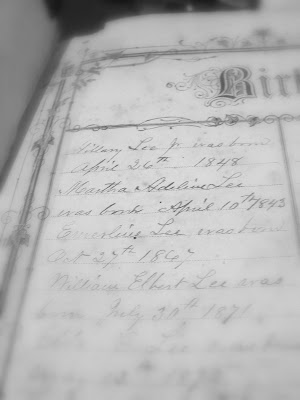 Birt
Lee Jr was born
April 26th 1848
Martha Adeline Lee
was born April 10th 1843
Lee was born
Oct 27th 1867
William Elbert Lee was
born July 30th 1871
Lee was born